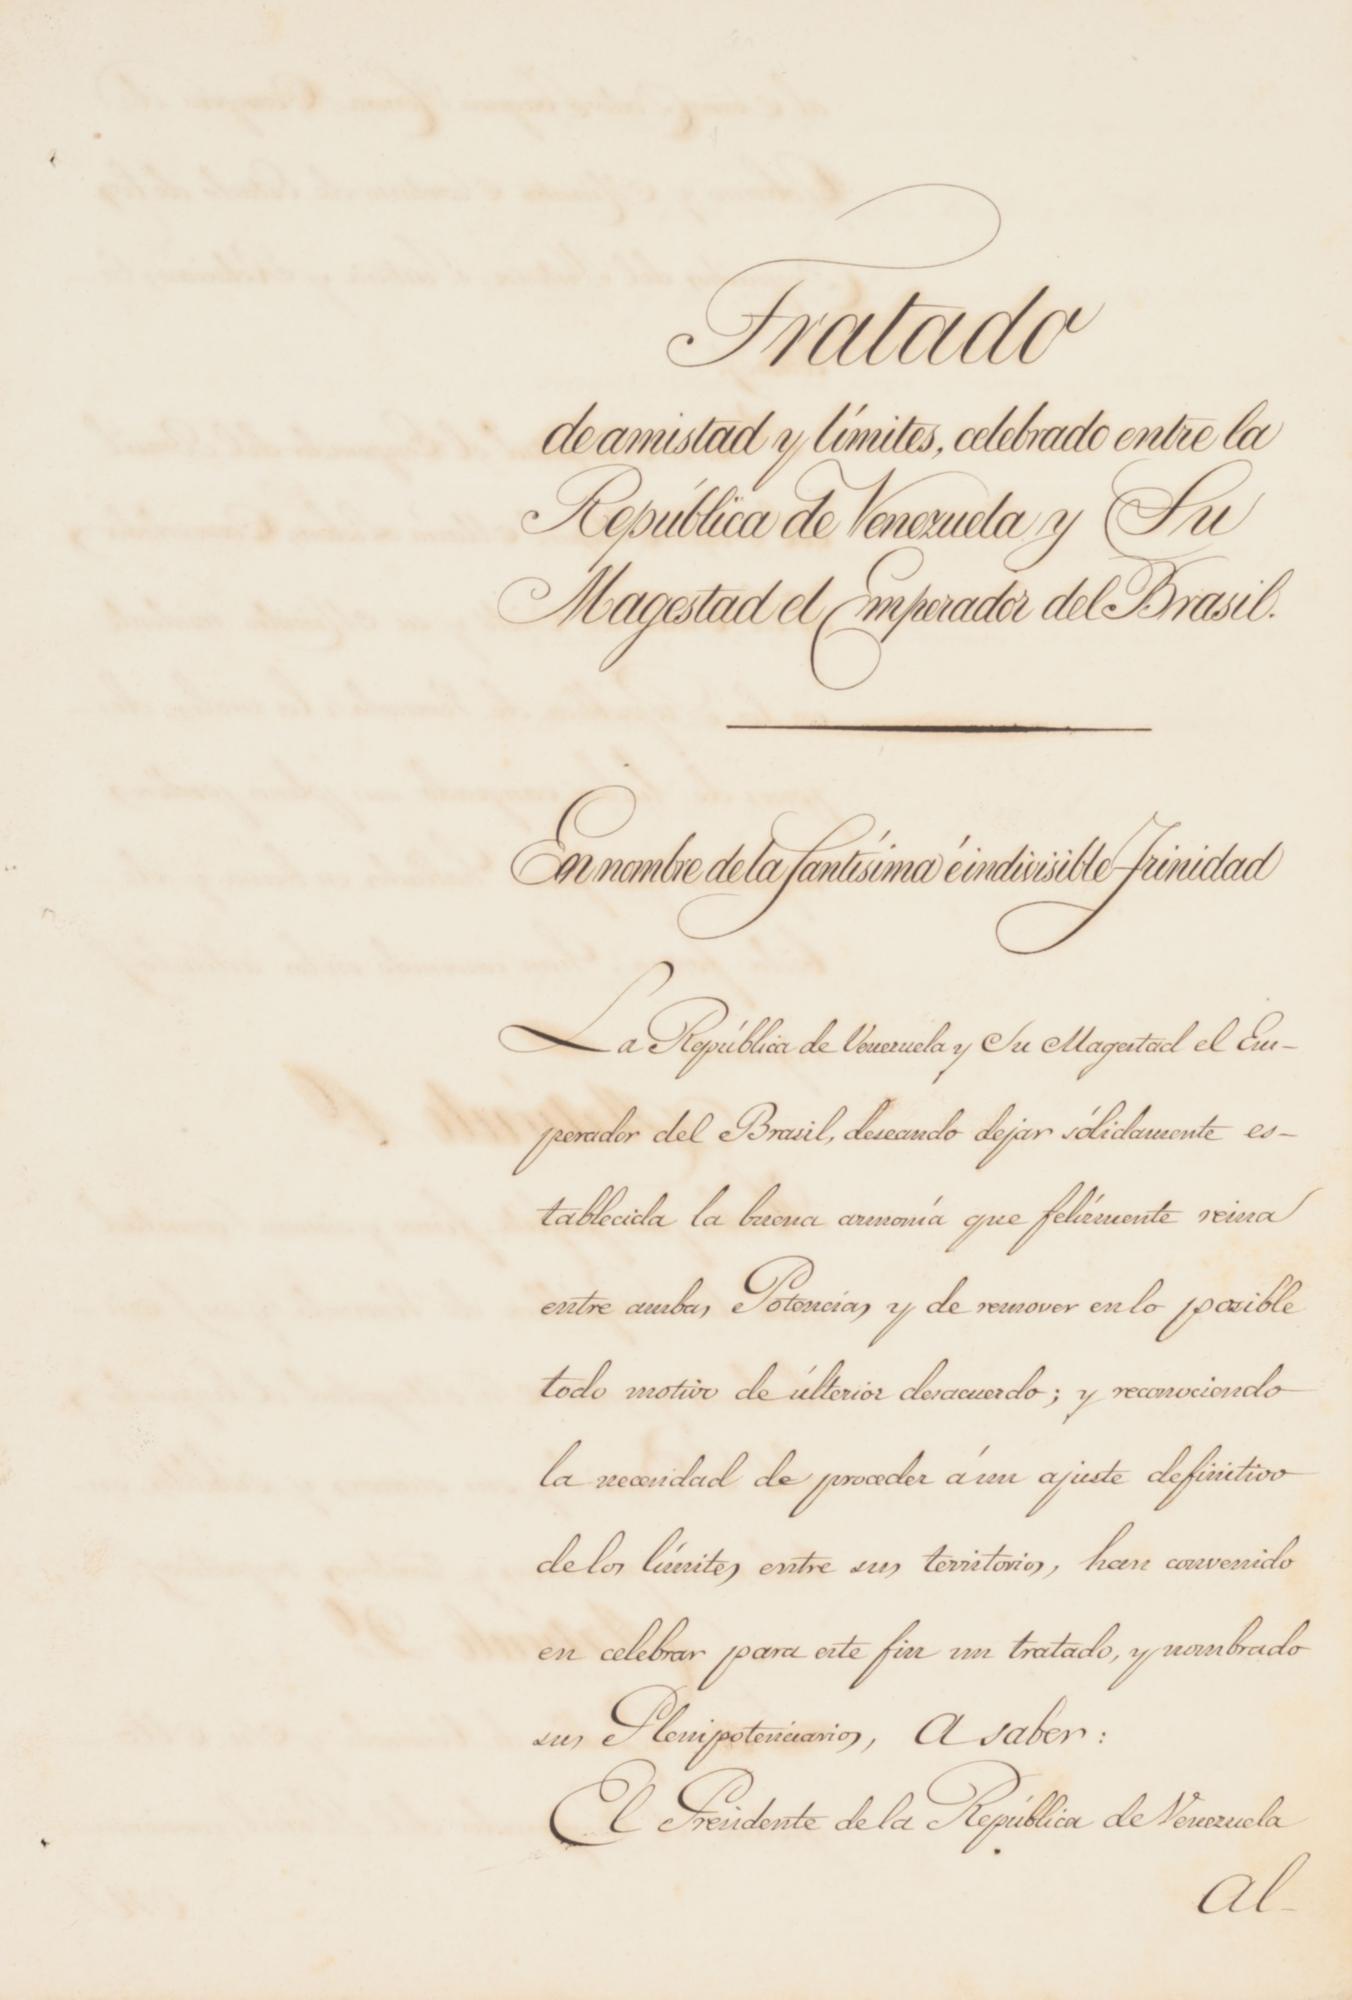 Tratado
de amistad y límites, celebrado entre la
República de Venezuela y Su
Magestad el Emperador del Brasil.
En nombre de la Santísima é indivisible Trinidad
La República de Venezuela y Su Magestad el Em-
perador del Brasil, deseando dejar sólidamente es-
tablecida la buena armonía que felizmente reina
entre ambas Potencias y de remover en lo posible
todo motivo de últerior desacuerdo; y reconociendo
la necesidad de proceder á un ajuste definitivo
de los límites entre sus territorios, han convenido
en celebrar para este fin un tratado, y nombrado
sus Plenipotenciarios, A saber:
El Presidente de la República de Venezuela
al-